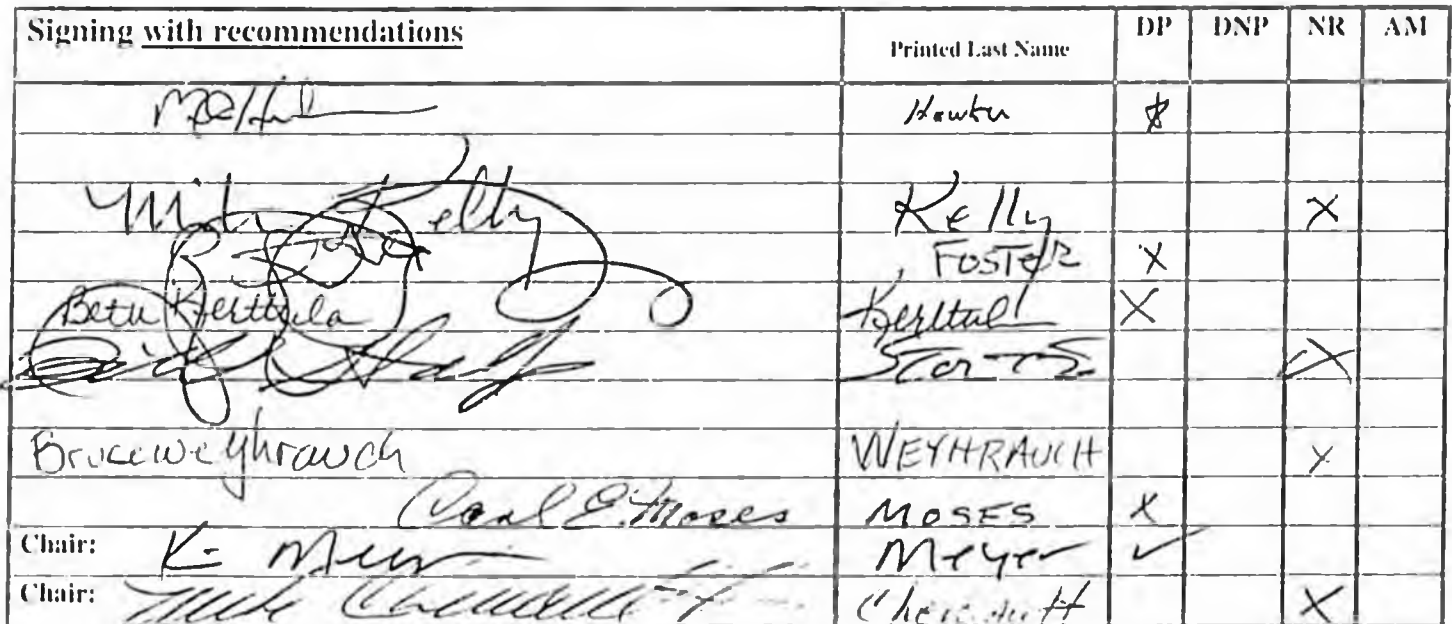 Signing with recommendations Printed Last Name DP DNP NR AM
Kelly Kelly X
FOSTER X
Beth Kerttula Kerttula X
X
Bruce Weyhrauch WEYHRAUCH X
Carl E. Moses MOSES X
Chair: K Meyer Meyer ✓
Chair: X